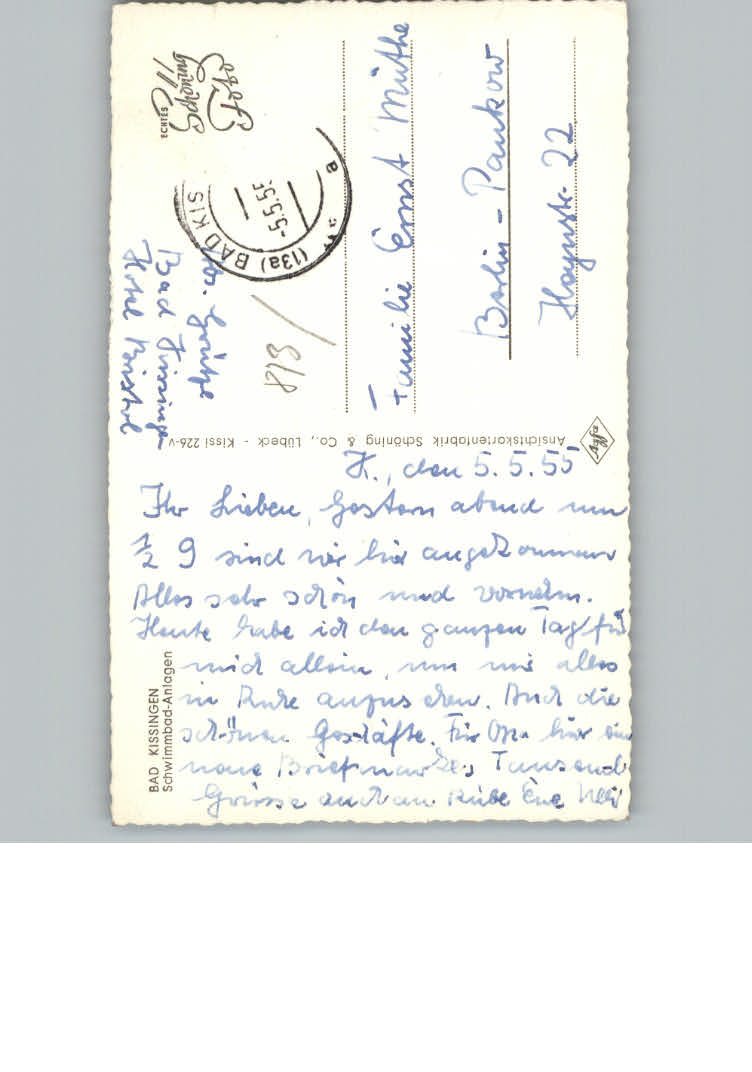 BAD KISSINGEN
Schwimmbad-Anlagen
K., den 5.5.55
Ihr Lieben, Gestern abend um
1/2 9 sind wir hier angekommen
Alles sehr schön und vornehm.
Heute habe ich den ganzen Tag für
mich allein, um mir alles
in Ruhe anzusehen. Auch die
schönen Geschäfte. Für Opa hier eine
neue Briefmarke. Tausend
Grüsse auch an Eure
Ansichtskartenfabrik Schöning & Co., Lübeck - Kissi 226-v
Agfa
Abs.
Bad Kissingen
Hotel Bristol
(13a) BAD KIS
-5.5.55
a
ECHTES
Schöning
Foto
Familie Ernst Müthe
Berlin - Pankow
Heynstr. 22